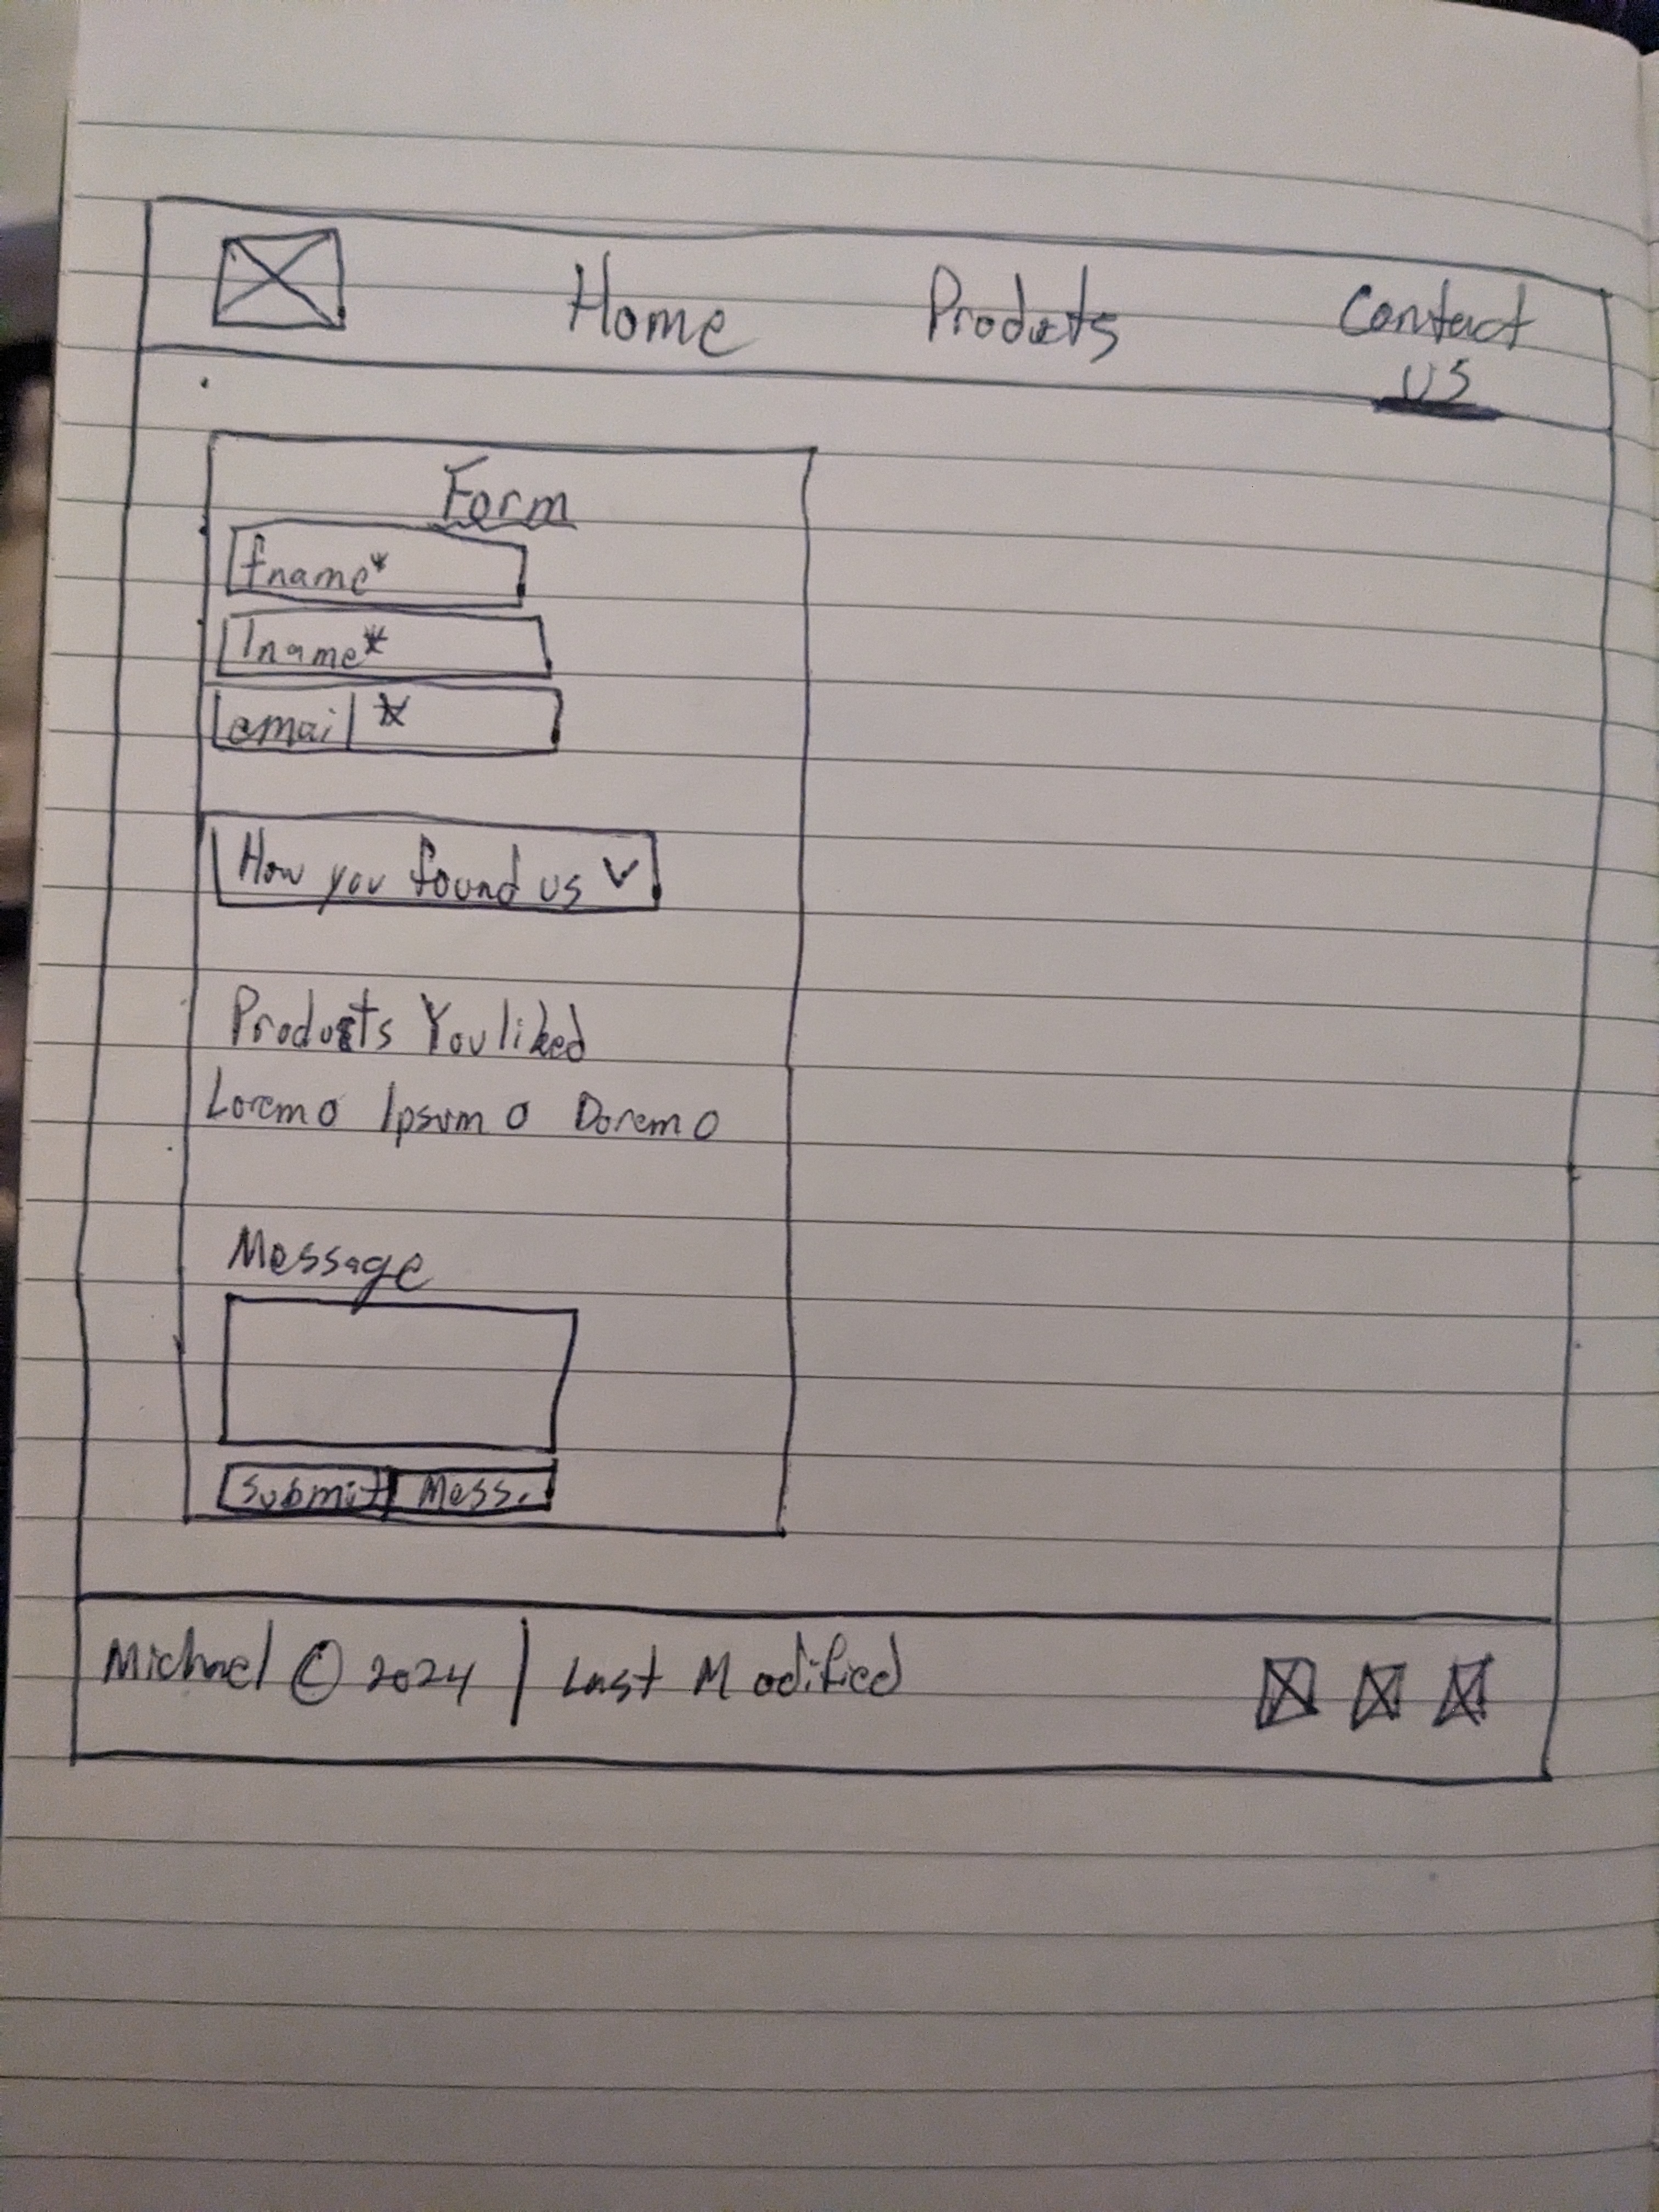 Home Products Contact
us
Form
fname*
lname*
email *
How you found us
Products You liked
Lorem Ipsum Dorem
Message
Submit Mess.
Michael © 2024 | Last Modified